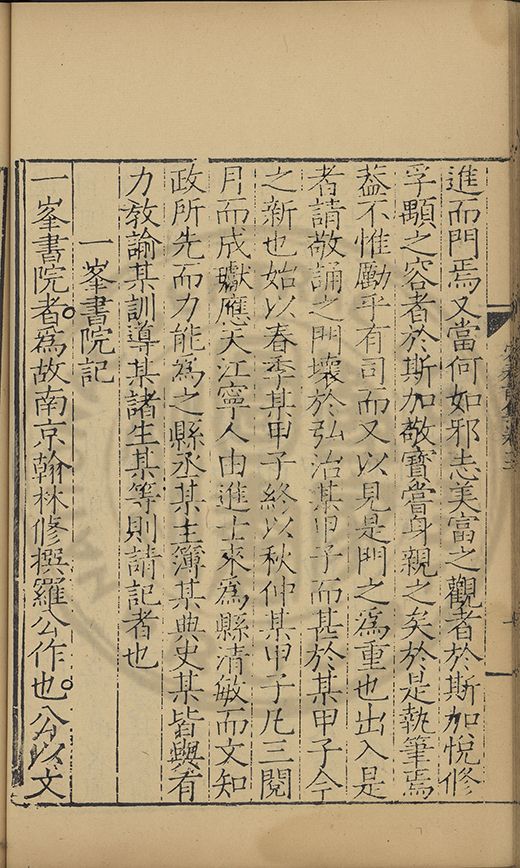 進而門焉又當何如邪志美富之觀者於斯加悅修
孚顒之容者於斯加敬寶當身親之矣於是執筆焉
葢不惟勵乎有司而又以見是門之爲重也出入是
者請敬誦之門壞於弘治某甲子而甚於某甲子今
之新也始以春季某甲子終以秋仲某甲子凡三閱
月而成瓛應天江寧人由進士來爲縣清敏而文知
政所先而力能爲之縣丞某主簿某典史某皆與有
力敎諭某訓導某諸生某等則請記者也
一峯書院記
一峯書院者爲故南京翰林修撰羅公作也公以文